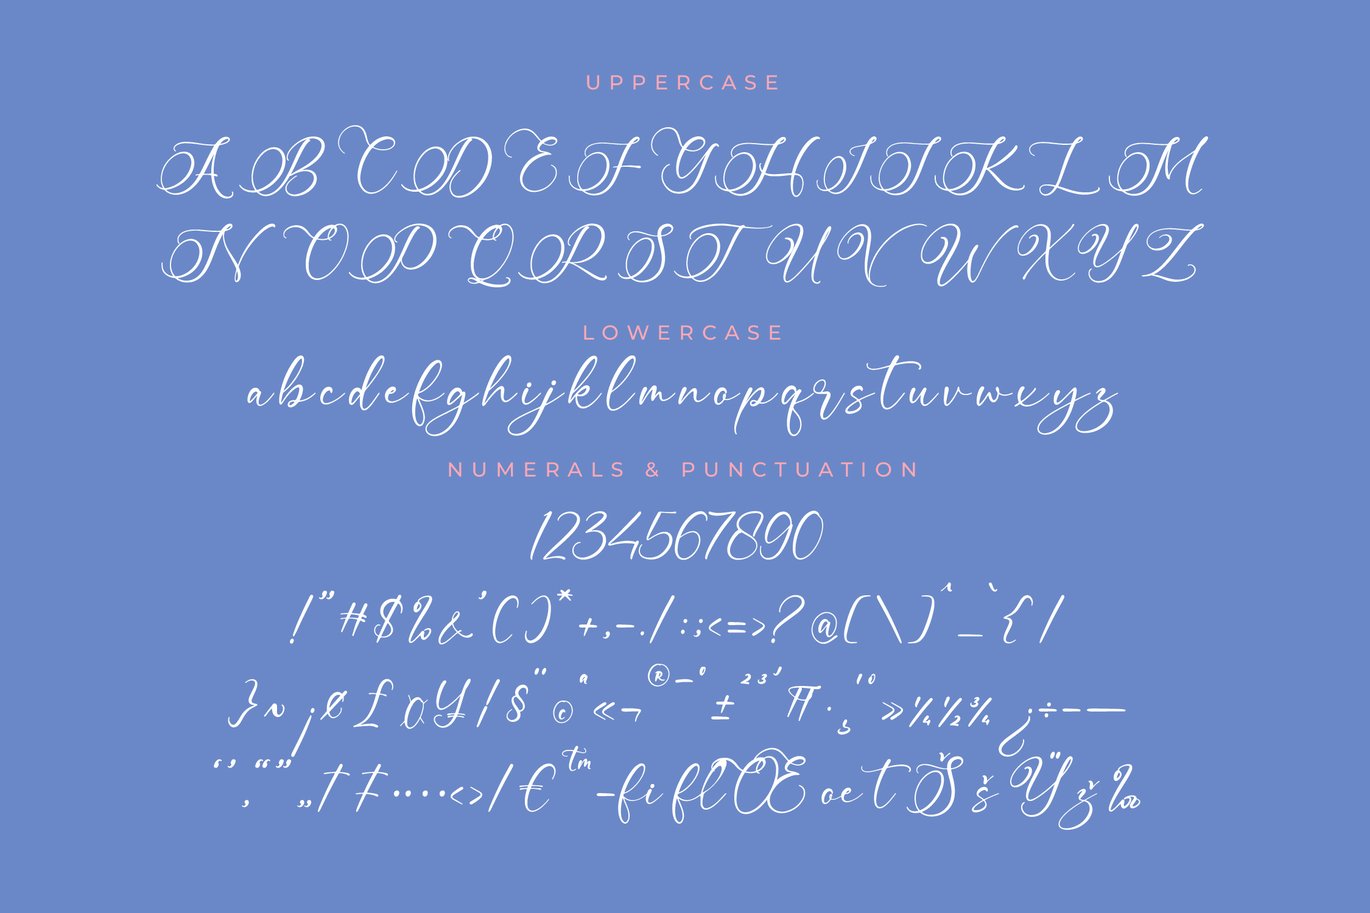 UPPERCASE
A B C D E F G H I J K L M
N O P Q R S T U V W X Y Z
LOWERCASE
abcdefghijklmnopqrstuvwxyz
NUMERALS & PUNCTUATION
1234567890
!"#$%&'()*+,-./:;<=>?@[\]^_`{|
}~¡¢£¤¥¦§¨©ª«¬®¯°±²³´¶·¸¹º»¼½¾¿÷–—
‘’‚“”„†‡•…‹›⁄€™−fiflŒœŁŠšŸž‰